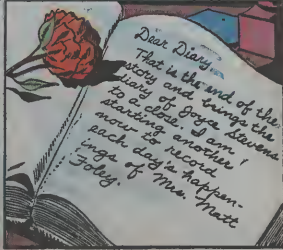 Dear Diary
That is the end of the
story and brings the
diary of Joyce Stevens
to a close. I am
starting another!
now to record
each day's happen-
ings of Mrs. Matt
Foley.